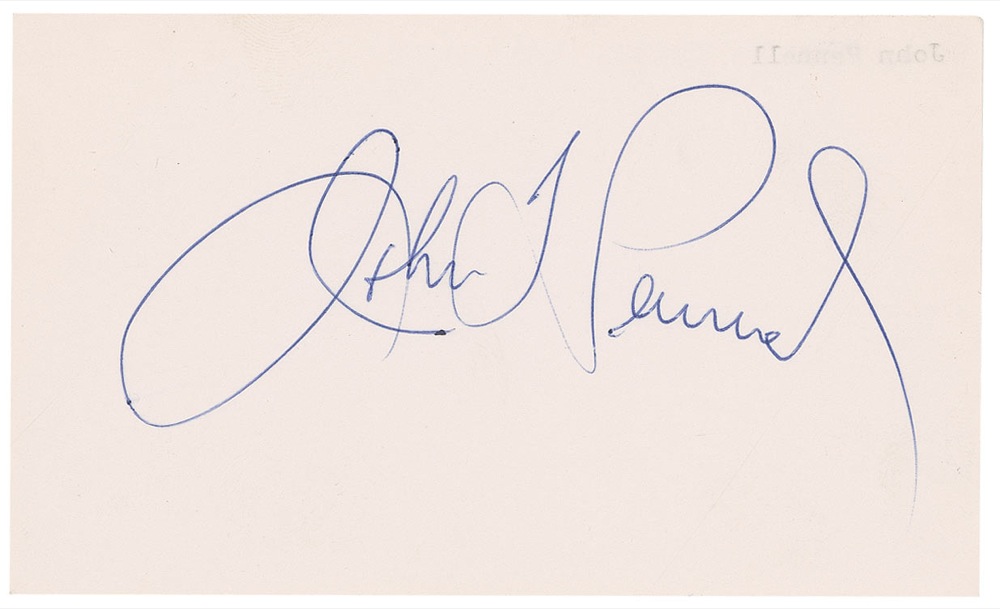 John Pennell
John T Pennel